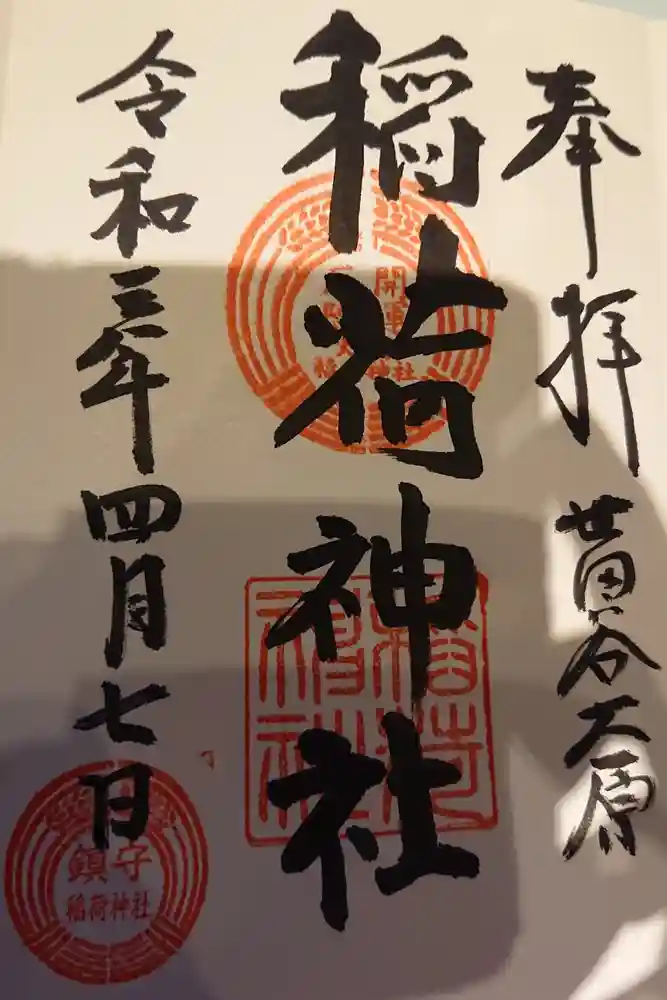 奉拝 世田谷大原
稲荷神社
令和三年四月七日
開運
神社
稲荷
神社
鎮守
稲荷神社